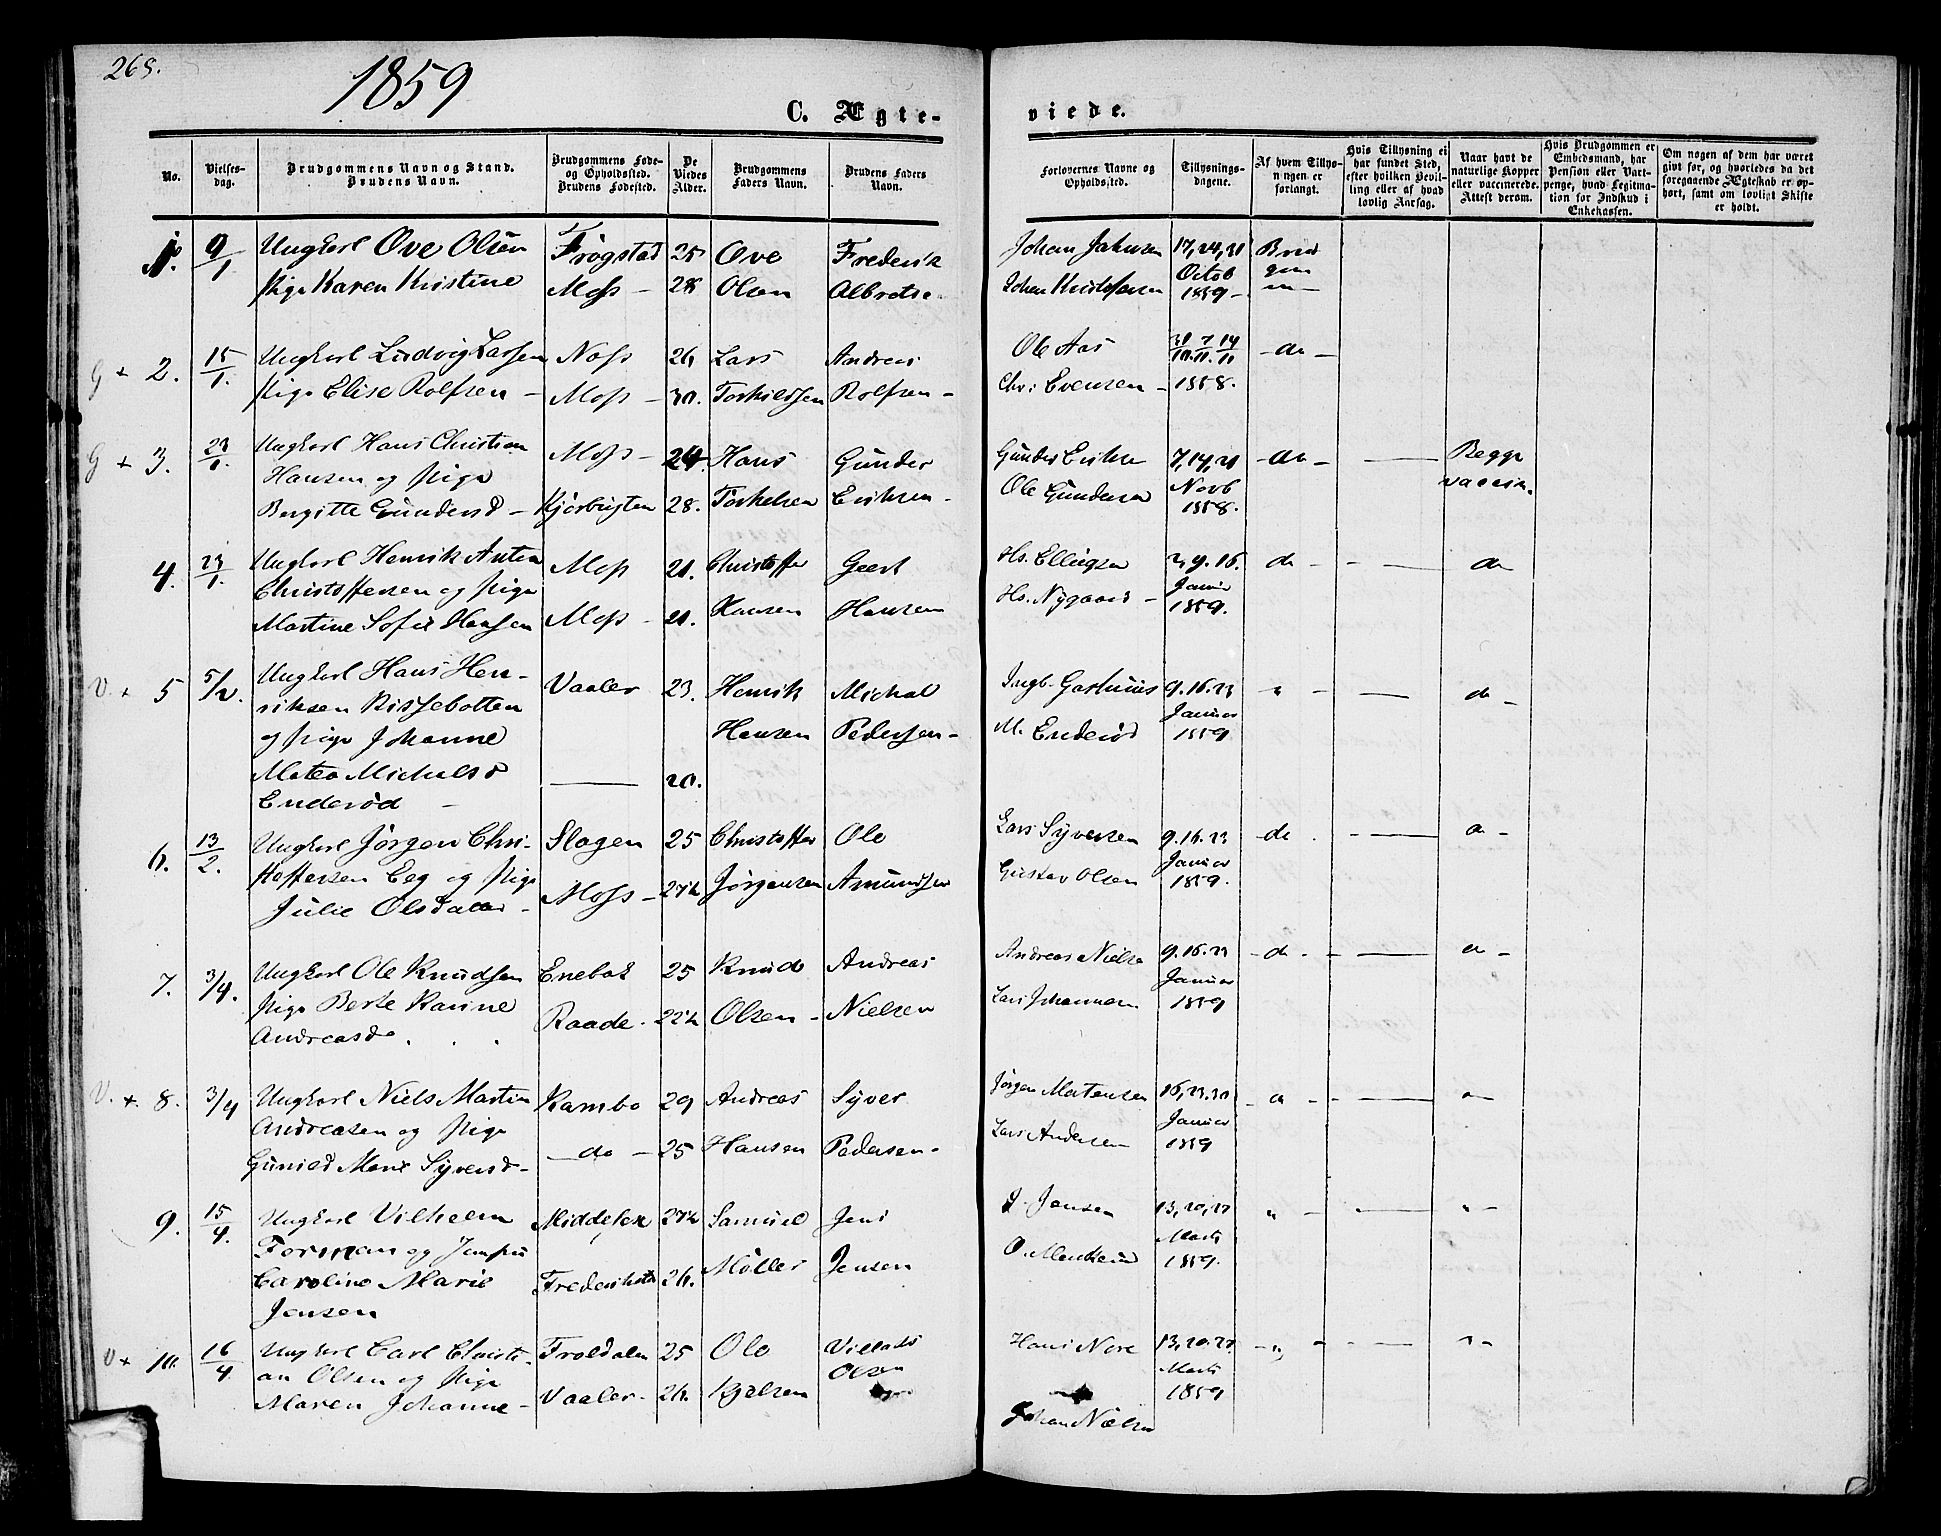 268.
1859
C. Ægte-
viede.
No.
Vielses-
dag.
Brudgommens Navn og Stand.
Brudens Navn.
Brudgommens Føde-
og Opholdssted.
Brudens Fødested.
De
Viedes
Alder.
Brudgommens
Faders Navn.
Brudens Faders
Navn.
Forlovernes Navne og
Opholdssted.
Tillysnings-
dagene.
Af hvem Tillys-
ningen er
forlangt.
Hvis Tillysning ei
har fundet Sted,
efter hvilken Bevil-
ling eller af hvad
lovlig Aarsag.
Naar havt de
naturlige Kopper
eller vaccinerede.
Attest derom.
Hvis Brudgommen er
Embedsmand, har
Pension eller Vart-
penge, hvad Legitima-
tion for Indskud i
Enkekassen.
Om nogen af dem har været
gift før, og hvorledes da det
foregaaende Ægteskab er op-
hørt, samt om lovligt Skifte
er holdt.
1. 9/1 Ungkarl Ove Olsen Frogstad 25 Ove Frederik Johan 17, 24, 31 Brud
Pige Karen Kristine Moss - 28 Olsen Octob gom
1859 -
G + 2. 15/1. Ungkarl Ludvig Larsen Moss 26 Lars Andreas Ole Aas 31/10 7/11 14/11 - do -
Pige Elise Rolfsen - Moss - 30. Torkildsen Rolfsen - Chr: Evensen - 1858.
G + 3. 23/1. Ungkarl Hans Christian Moss - 24. Hans Gunder Gunder 7, 14, 21 - do - Begge
Hansen og Pige Novb
Bergitte Gundersd - 28. Torkelsen Eriksen - Ole Gundersen 1858. vaccin.
4. 23/1. Ungkarl Henrik Anton Moss 21. Christoffer Geert Hs. Ellingsen 2, 9. 16. do do
Christoffersen og Pige Januar
Martine Sofie Hansen Moss - 21. Hansen Hansen Hs. Nygaard - 1859.
V. + 5 5/2. Ungkarl Hans Hen- Vaaler 23. Henrik Michal 9. 16. 23 do -
riksen Rissebotten Januar
og Pige Johanne Hansen Pedersen - M. Enderød 1859
Matea Michelsd 20.
Enderød -
6. 13/2. Ungkarl Jørgen Chri- Slagen 25 Christoffer Ole Lars Syversen 9. 16. 23 - do
stoffersen Eeg og Pige Januar
Julie Olsdatter - Moss - 27½ Jørgensen Amundsen Gustav Olsen 1859.
7. 3/4. Ungkarl Ole Knudsen Enebak 25 Knud Andreas Andreas Nielsen 9. 16. 23 - do
Pige Berte Karine Januar
Andreasd. Raade - 22½ Olsen - Nielsen Lars Johannesen 1859
V. + 8. 3/4 Ungkarl Niels Martin Kambo 29 Andreas Syver Jørgen Mortensen 16, 23. 30
Andreasen og Pige Januar
Gunild Marie Syversd - - do - 25 Hansen Pedersen - Lars Andersen 1859
9. 15/4. Ungkarl Vilhelm Middelsex 27½ Samuel Jens Jansen 13, 20, 27
Forman og Jomfru Marts
Caroline Marie 26. Möller Jensen 1859.
Jensen
V + 10. 16/4 Ungkarl Carl Christi- 25 Ole Hans Nore 13, 20. 27
an Olsen og Pige Olsen Marts
Maren Johanne - Vaaler - 26. Kjølsen 1859
Johan Nielsen